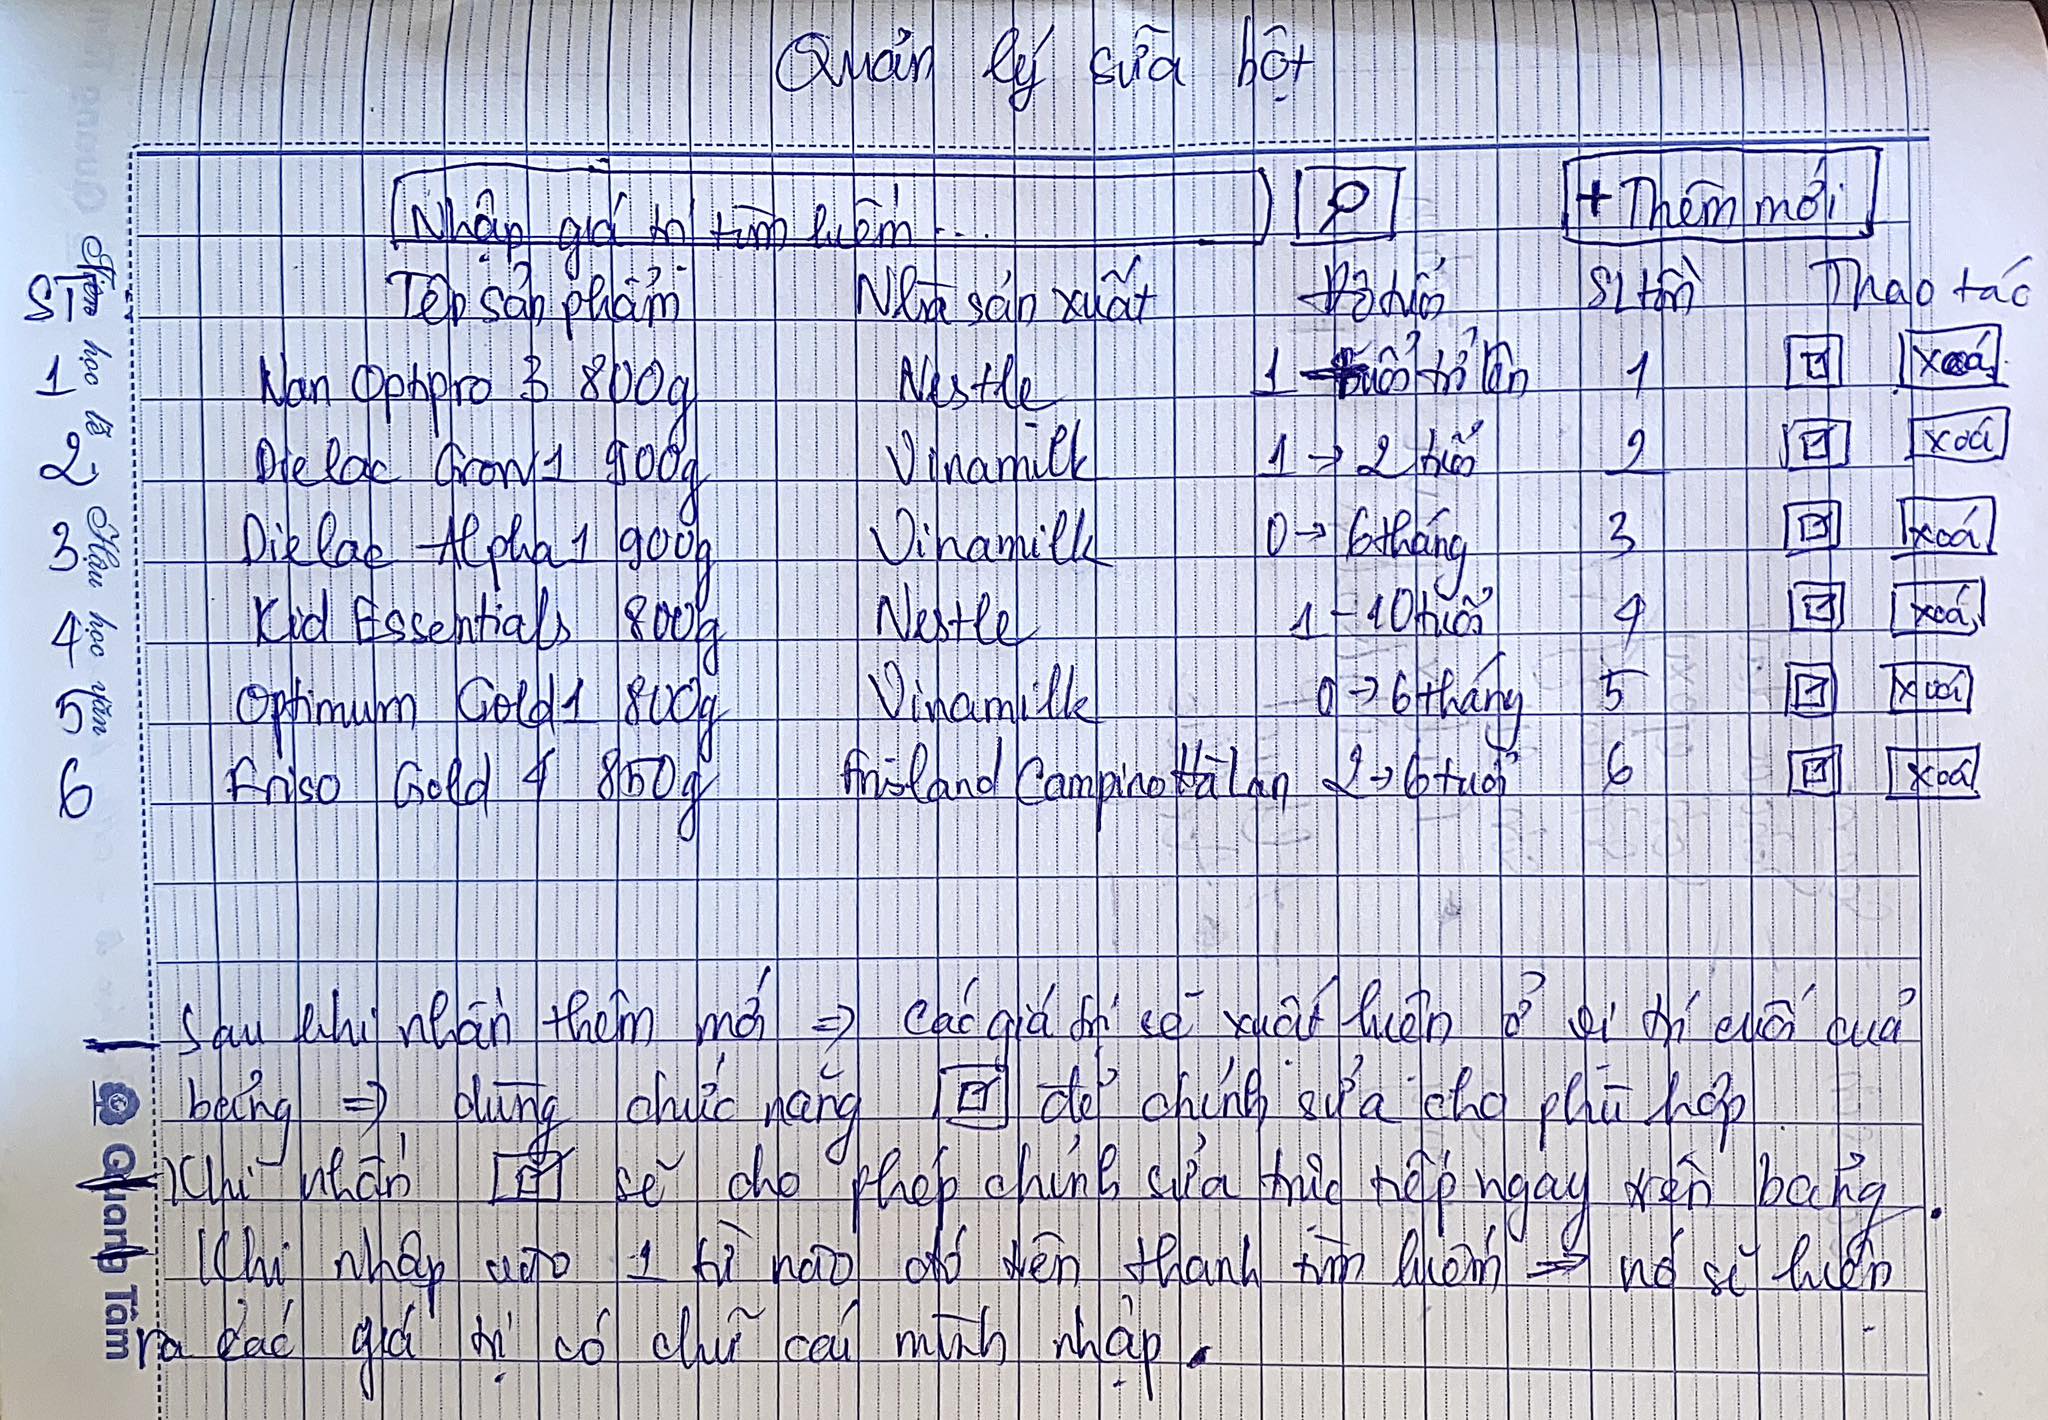 Quản lý sữa bột
Nhập giá trị tìm kiếm... + Thêm mới
STT Tên sản phẩm Nhà sản xuất Độ tuổi SL tồn Thao tác
1 Nan Optipro 3 800g Nestle 1 tuổi trở lên 1 xoá
2 Dielac Grow 1 900g Vinamilk 1 → 2 tuổi 2 xoá
3 Dielac Alpha 1 900g Vinamilk 0 → 6 tháng 3 xoá
4 Kid Essentials 800g Nestle 1 - 10 tuổi 4 xoá
5 Optimum Gold 1 800g Vinamilk 0 → 6 tháng 5 xoá
6 Friso Gold 4 850g Frisland Campina Hà Lan 2 → 6 tuổi 6 xoá
- Sau khi nhấn thêm mới ⇒ các giá trị sẽ xuất hiện ở vị trí cuối của
bảng ⇒ dùng chức năng để chỉnh sửa cho phù hợp
- Khi nhấn sẽ cho phép chỉnh sửa trực tiếp ngay trên bảng.
- Khi nhập vào 1 từ nào đó trên thanh tìm kiếm ⇒ nó sẽ hiện
ra các giá trị có chữ cái mình nhập.
Tiên học lễ Hậu học văn
Quang Tâm